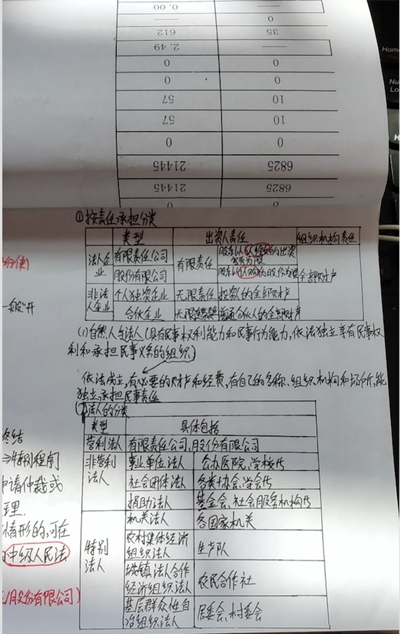 0.00
35 612
2.49
0 0
0 0
10 57
10 57
0 0
6825 21445
6825 21445
0 0
①按责任承担分类
类型 出资人责任 组织机构责任
法人企业 有限责任公司 有限责任 股东以认缴的出资额为限
股份有限公司 全部财产
非法人企业 个人独资企业 无限责任 投资人的全部财产
合伙企业 无限连带 普通合伙人的全部财产
(1)自然人与法人(具有民事权利能力和民事行为能力,依法独立享有民事权
利和承担民事义务的组织)
依法成立,有必要的财产和经费,有自己的名称、组织机构和场所,能
独立承担民事责任
法人的分类
类型 具体包括
营利法人 有限责任公司、股份有限公司
非营利法人 事业单位法人 公办医院,学校等
社会团体法人 各类协会,学会等
捐助法人 基金会、社会服务机构等
特别法人 机关法人 各国家机关
农村集体经济组织法人 生产队
城镇法合作经济组织法人 农民合作社
基层群众性自治组织法人 居委会,村委会
一般开
终结
⇒特别程序
申请仲裁或
受理
情形的,可在
中级人民法
股份有限公司)